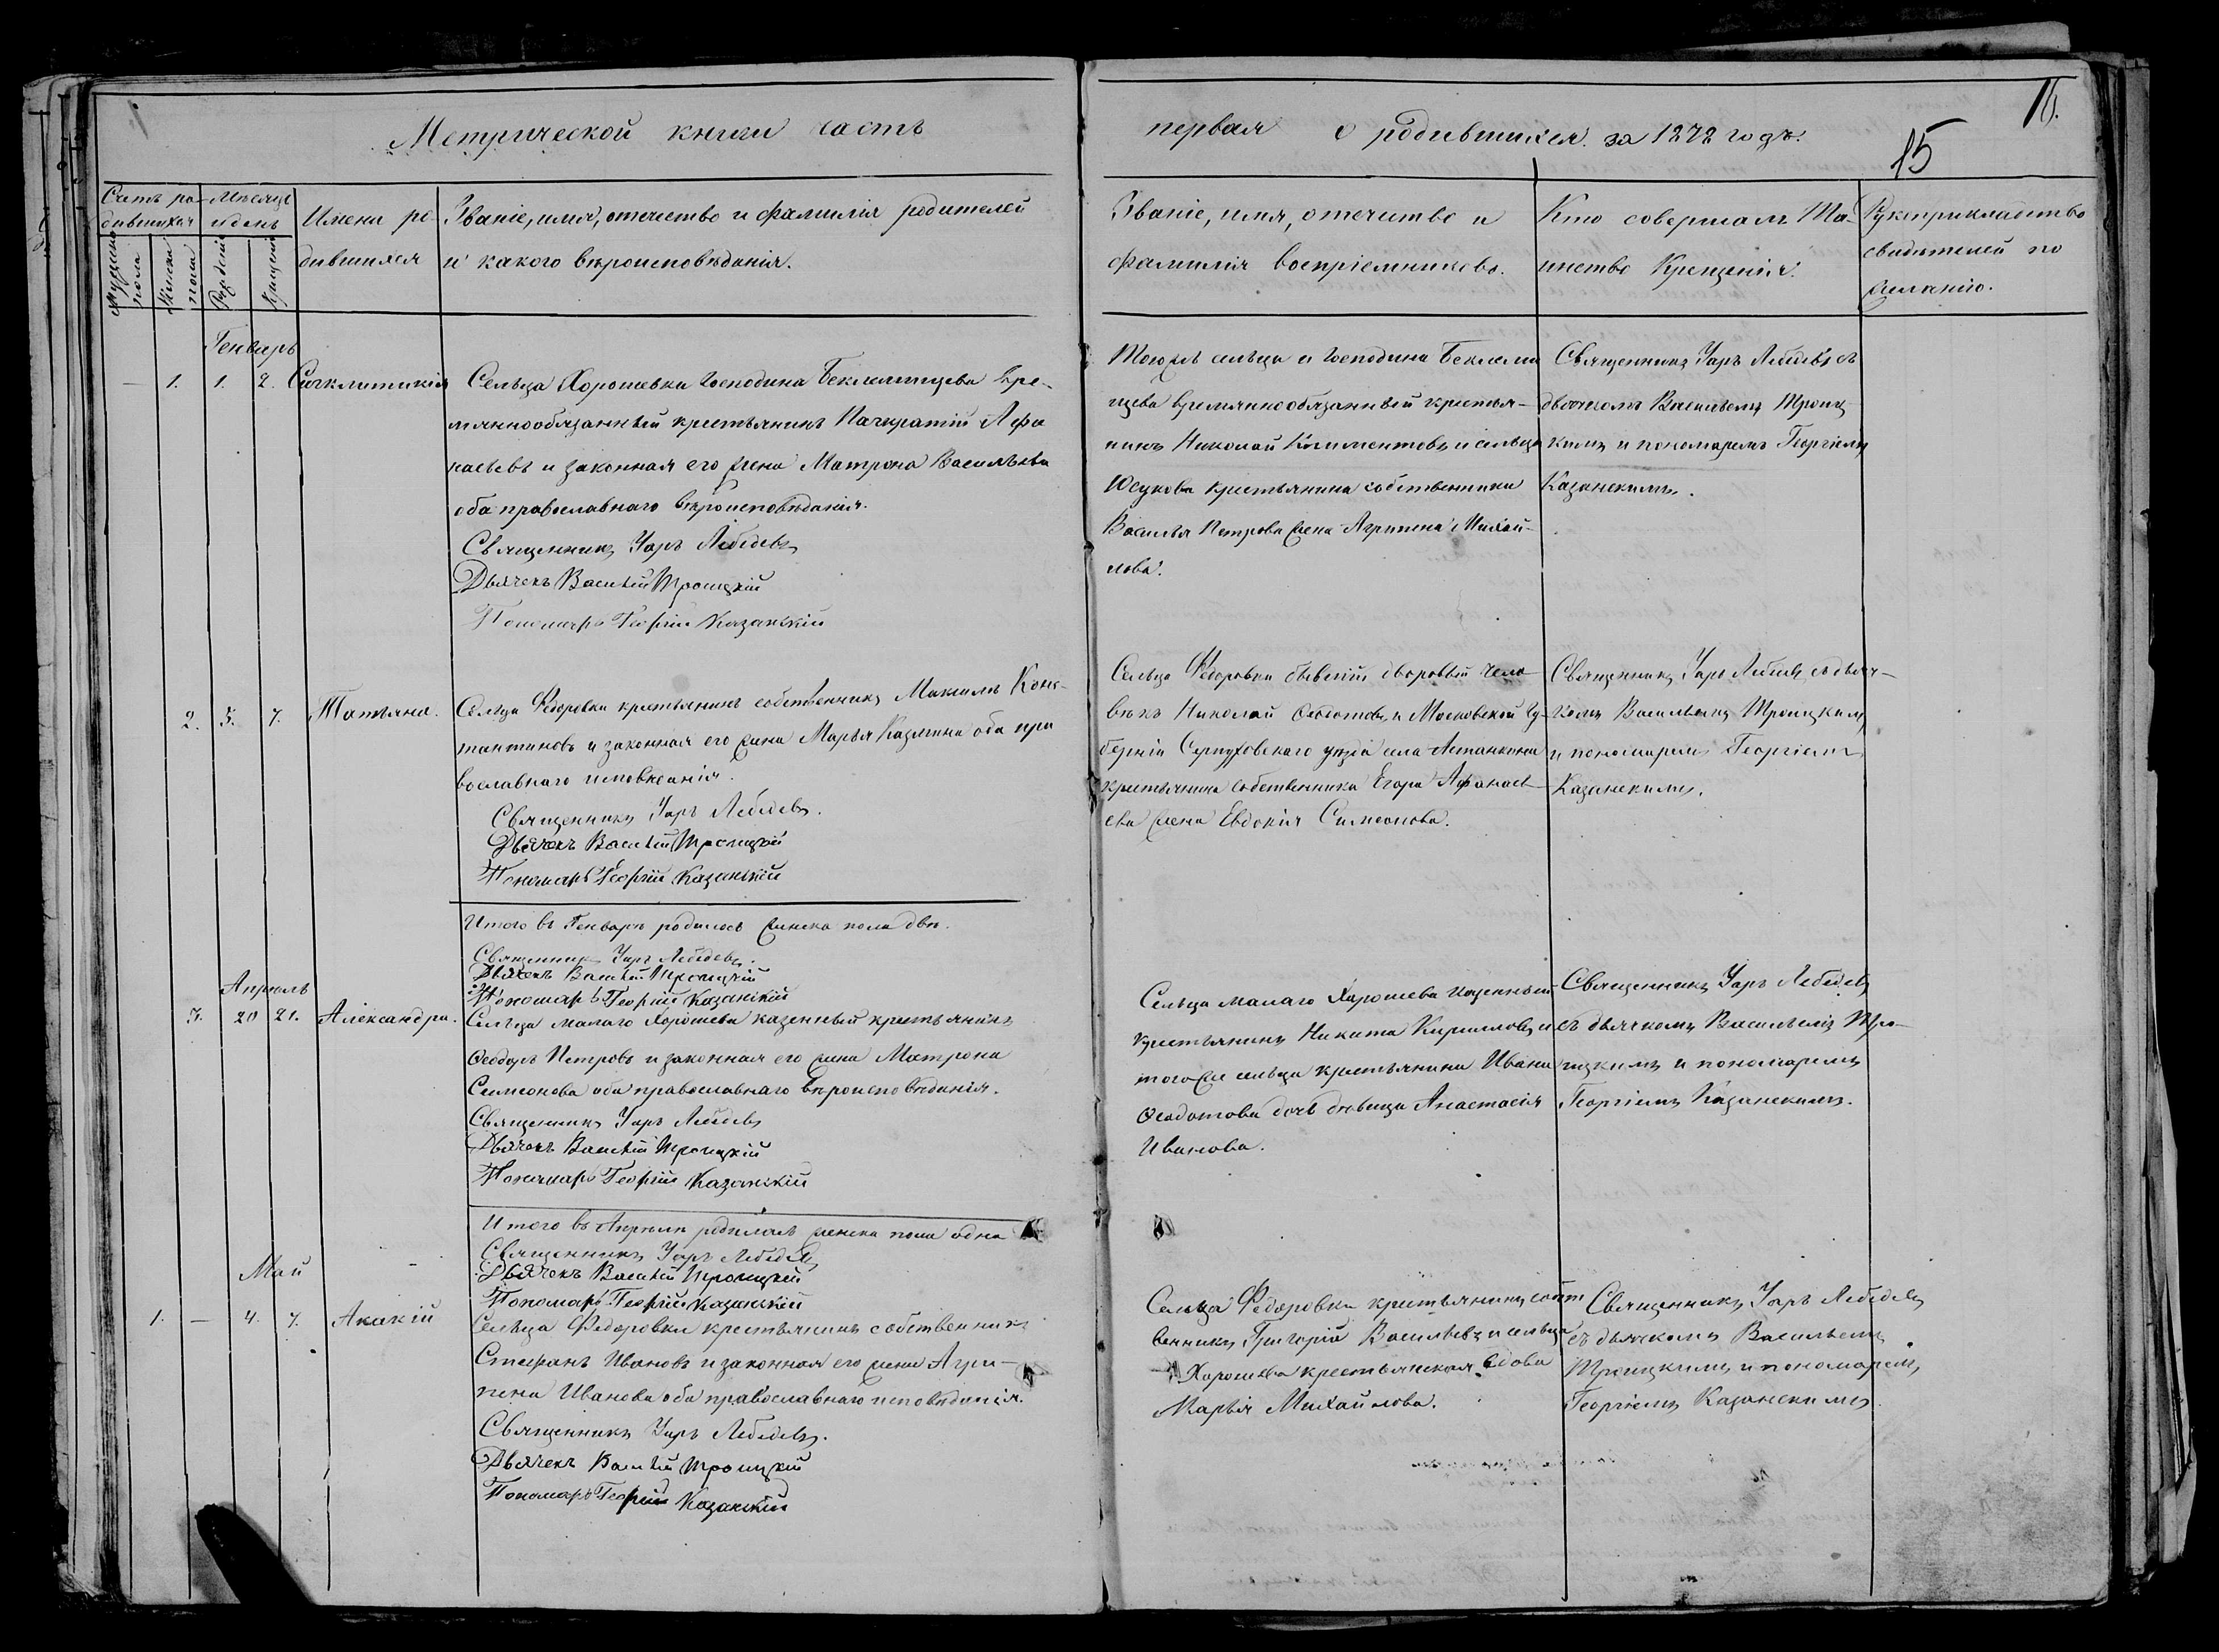 Метрической книги часть
первая о родившихся за 1872 годъ.
16.
15
Счетъ ро-
дившихся
Мужеска
пола
Женска
пола
Мѣсяцъ
и день
Рожденія
Крещенія
Имена ро-
дившихся
Званіе, имя, отчество и фамилія родителей
и какого вѣроисповѣданія.
Званіе, имя, отечество и
фамилія воспріемниковъ.
Кто совершалъ Та-
инство Крещенія.
Рукоприкладство
свидѣтелей по
желанію.
Генварь
— 1. 1. 2. Сигклитикія
Сельца Хорошевки Господина Беклемищева вре-
мяннообязанный крестьянинъ Панкратій Афа
насьевъ и законная его жена Матрона Васильева
оба православнаго вѣроисповѣданія.
Священникъ Уаръ Лебедевъ
Дьячекъ Василій Троицкій
Пономарь Георгій Казанскій
Тогожъ сельца и Господина Беклеми
щева времяннообязанный крестья-
нинъ Николай Климентовъ и сельца
Юсукова крестьянина собственника
Василья Петрова жена Агрипена Михай-
лова.
Священникъ Уаръ Лебедевъ съ
дьячкомъ Васильемъ Троиц-
кимъ и пономаремъ Георгіемъ
Казанскимъ.
2. 5. 7. Татьяна.
Сельца Федоровки крестьянинъ собственникъ Максимъ Конс-
тантиновъ и законная его жена Марья Казмина оба пра
вославнаго исповѣданія.
Священникъ Уаръ Лебедевъ.
Дьячекъ Василій Троицкій
Пономарь Георгій Казанскій
Сельца Федоровки бывшій дворовый чело-
вѣкъ Николай Ѳедотовъ и Московской Гу-
берніи Серпуховскаго уѣзда села Астанкина
крестьянина собственника Егора Афанась-
ева жена Евдокія Симеонова.
Священникъ Уаръ Лебедевъ съ дьяч-
комъ Васильемъ Троицкимъ
и пономаремъ Георгіемъ
Казанскимъ.
Итого въ Генварѣ родилось женска пола двѣ.
Священникъ Уаръ Лебедевъ.
Дьячекъ Василій Троицкій
Пономарь Георгій Казанскій
Апрель
3. 20 21. Александра.
Сельца малаго Хорошева казенный крестьянинъ
Ѳеодоръ Петровъ и законная его жена Матрона
Симеонова оба православнаго вѣроисповѣданія.
Священникъ Уаръ Лебедевъ
Дьячекъ Василій Троицкій
Пономарь Георгій Казанскій
Сельца малаго Хорошева казенный
крестьянинъ Никита Кириловъ и
тогоже сельца крестьянина Ивана
Ѳеодотова дочь дѣвица Анастасія
Иванова.
Священникъ Уаръ Лебедевъ
съ дьячкомъ Васильемъ Тро-
ицкимъ и пономаремъ
Георгіемъ Казанскимъ.
Итого въ Апрели родилась женска пола одна
Священникъ Уаръ Лебедевъ
Дьячекъ Василій Троицкій
Пономарь Георгій Казанскій
Май
1. — 4. 7. Акакій
Сельца Федоровки крестьянинъ собственникъ
Стефанъ Ивановъ и законная его жена Агри-
пена Иванова оба православнаго исповѣданія.
Священникъ Уаръ Лебедевъ.
Дьячекъ Василій Троицкій
Пономарь Георгій Казанскій
Сельца Федоровки крестьянинъ собст
венникъ Григорій Васильевъ и сельца
Хорошева крестьянская вдова
Марья Михайлова.
Священникъ Уаръ Лебедевъ
съ дьячкомъ Васильемъ
Троицкимъ и пономаремъ
Георгіемъ Казанскимъ